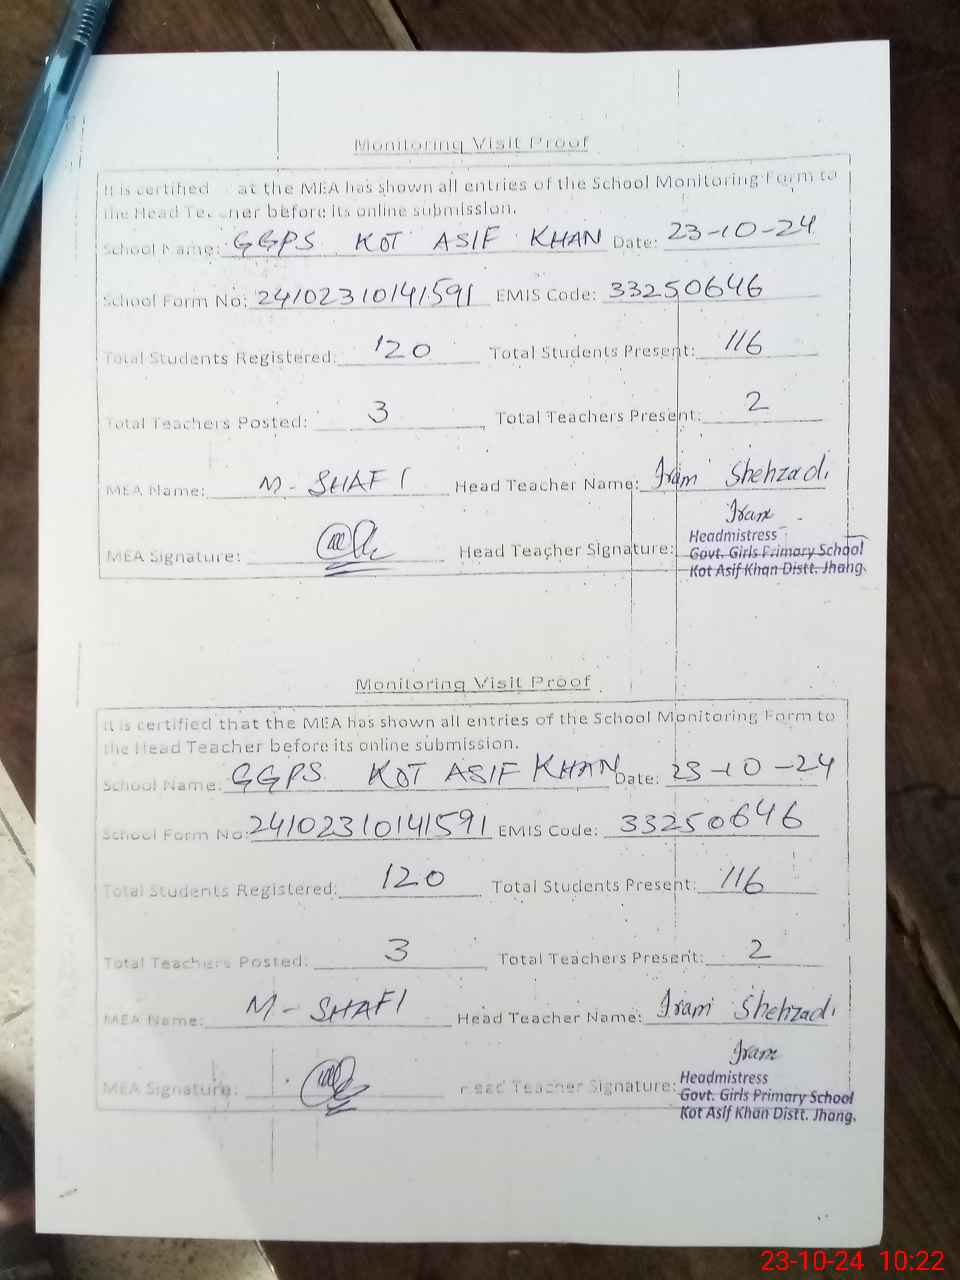 Monitoring Visit Proof
It is certified at the MEA has shown all entries of the School Monitoring Form to
the Head Teacher before its online submission.
School Name: GGPS KOT ASIF KHAN Date: 23-10-24
School Form No: 24102310141591 EMIS Code: 33250646
Total Students Registered: 120 Total Students Present: 116
Total Teachers Posted: 3 Total Teachers Present: 2
MEA Name: M-SHAFI Head Teacher Name: Iram Shehzadi
Iram
MEA Signature: Head Teacher Signature: Headmistress
Govt. Girls Primary School
Kot Asif Khan Distt. Jhang.
Monitoring Visit Proof
It is certified that the MEA has shown all entries of the School Monitoring Form to
the Head Teacher before its online submission.
School Name: GGPS KOT ASIF KHAN Date: 23-10-24
School Form No: 24102310141591 EMIS Code: 33250646
Total Students Registered: 120 Total Students Present: 116
Total Teachers Posted: 3 Total Teachers Present: 2
MEA Name: M-SHAFI Head Teacher Name: Iram Shehzadi
Iram
MEA Signature: Head Teacher Signature: Headmistress
Govt. Girls Primary School
Kot Asif Khan Distt. Jhang.
23-10-24 10:22